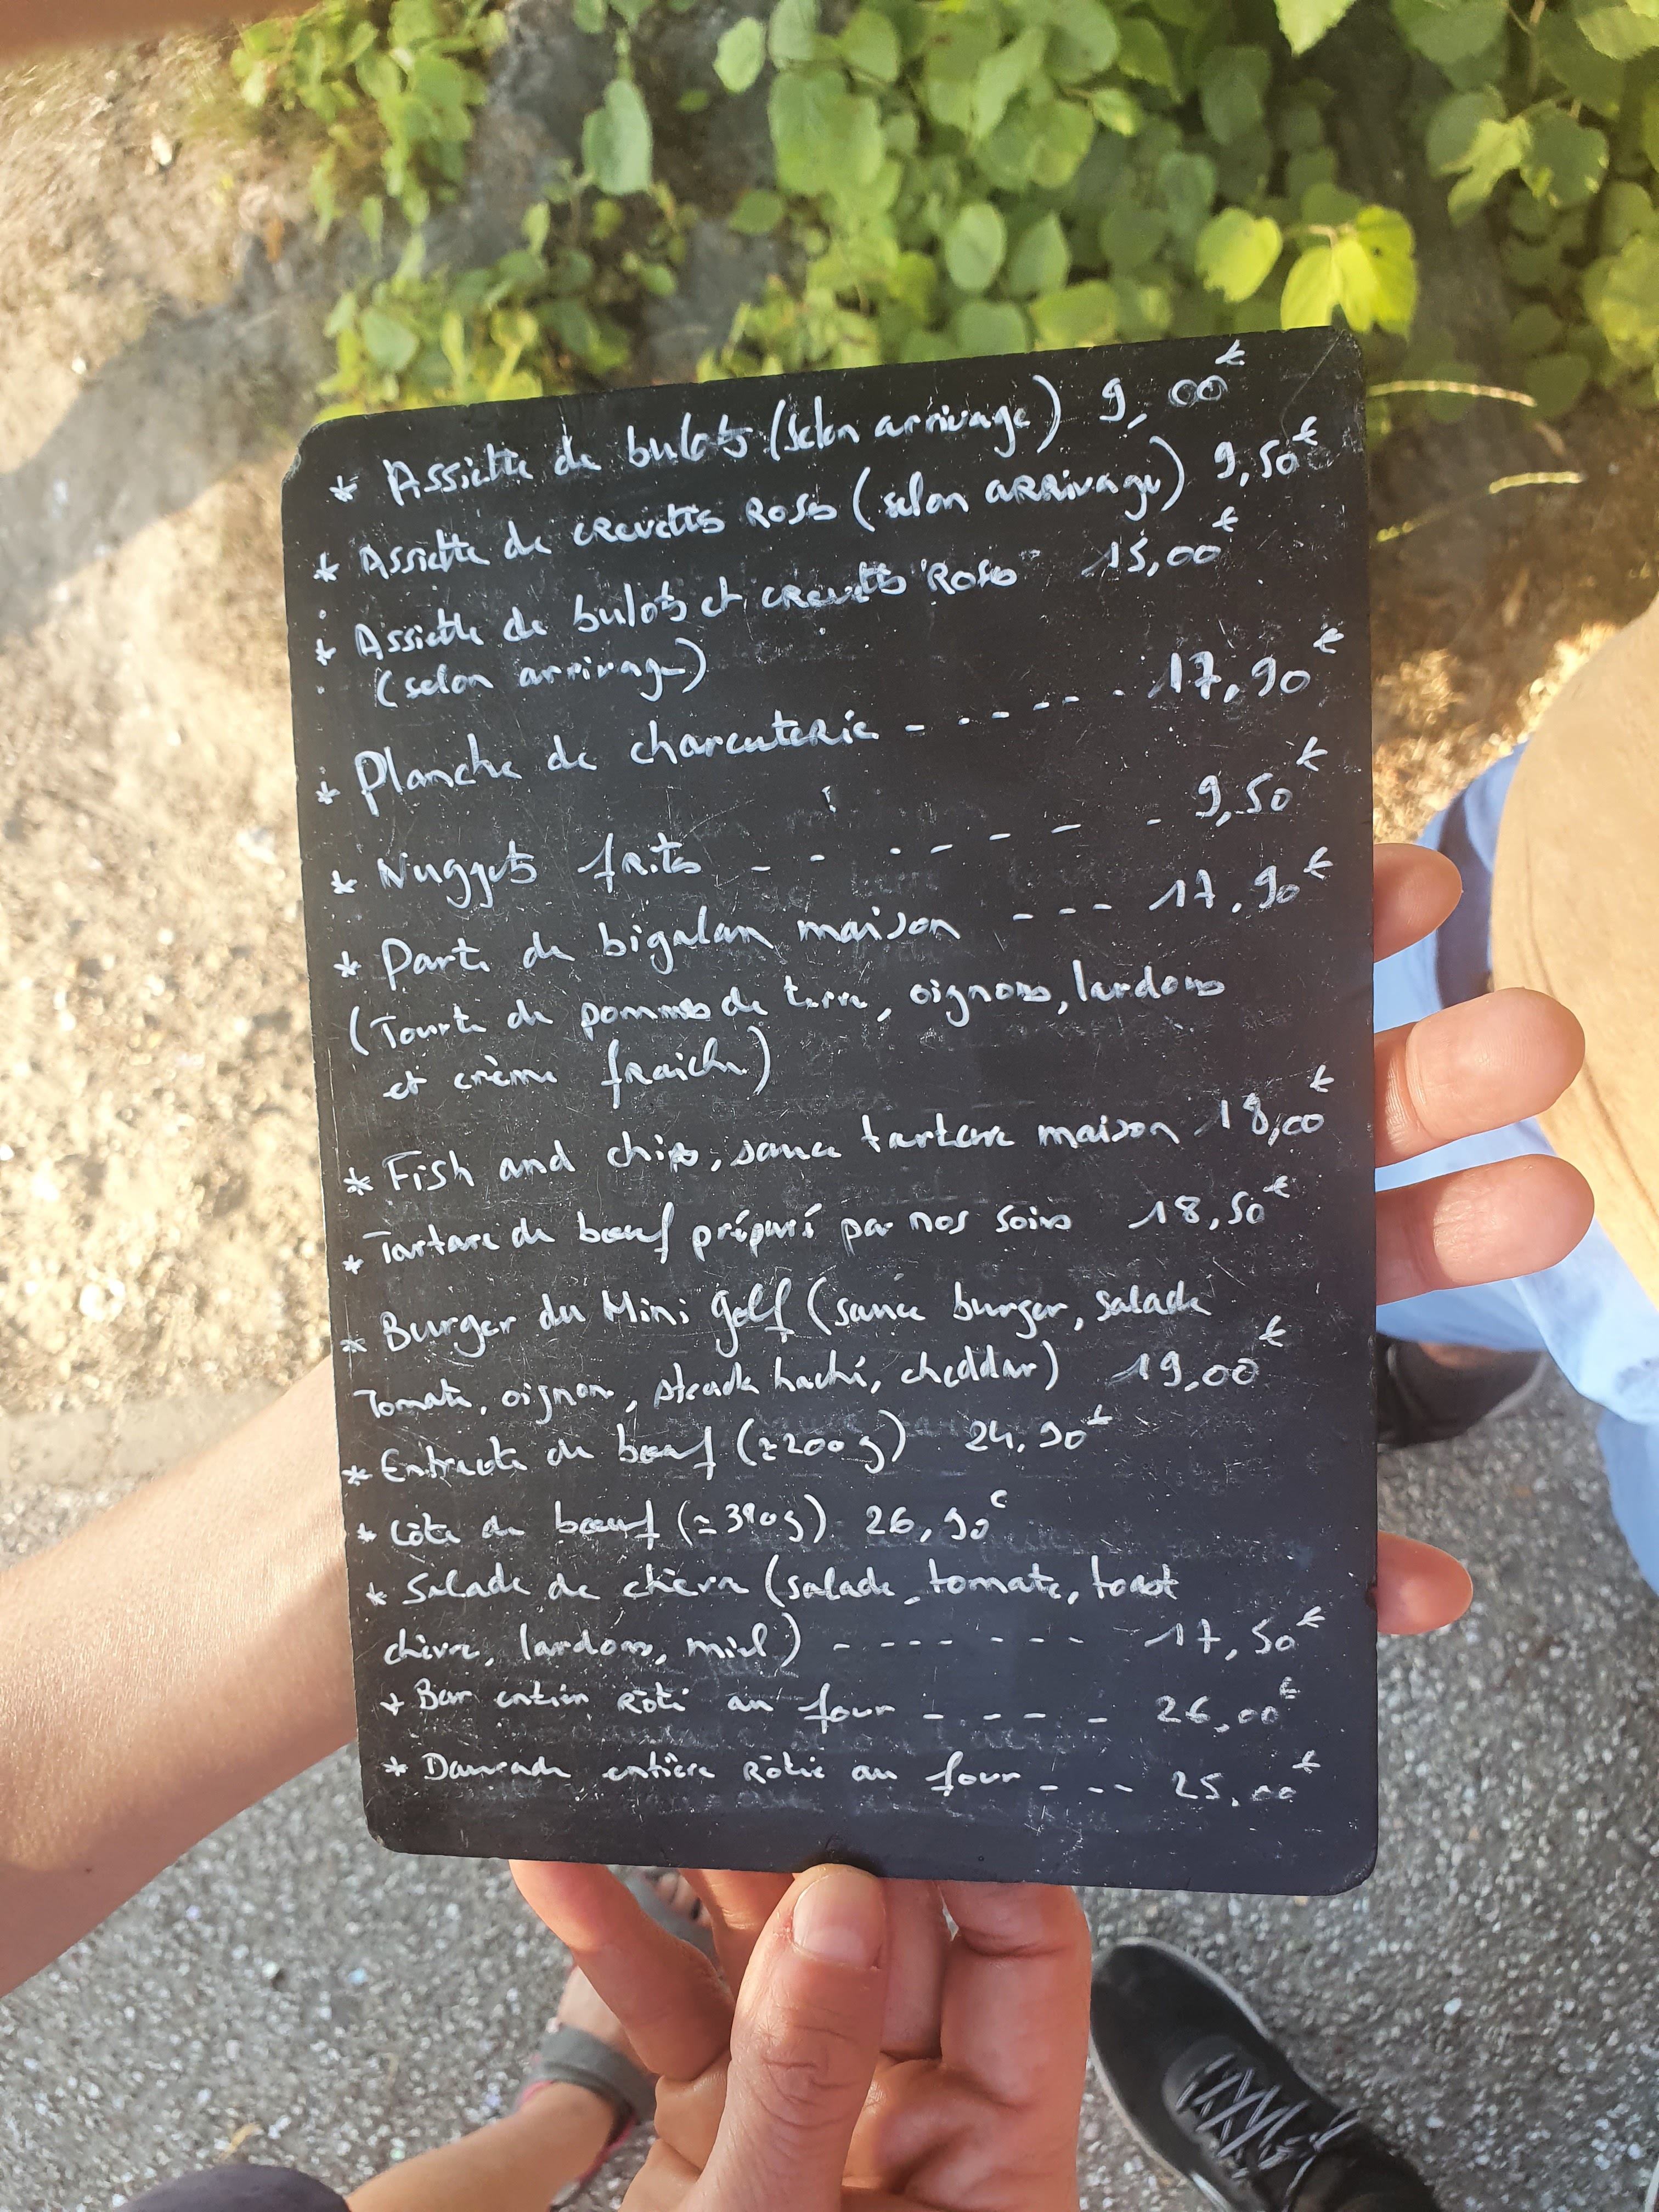 * Assiette de bulots (selon arrivage) 9,00€
* Assiette de crevettes Roses (selon arrivage) 9,50€
* Assiette de bulots et crevettes Roses 15,00€
(selon arrivage)
* Planche de charcuterie - - - - - - 17,90€
* Nuggets frites - - - - - - - 9,50€
* Part de bigalan maison - - - 17.90€
(Tourte de pommes de terre, oignons, lardons
et crème fraiche)
* Fish and chips, sauce tartare maison 18,00€
* Tartare de bœuf préparé par nos soins 18,50€
* Burger du Mini Golf (sauce burger, salade
Tomate, oignon, steack haché, cheddar) 19,00€
* Entrecote de bœuf (≈200g) 24.90€
* Côte de bœuf (≈ g) 26,90€
* Salade de chèvre (salade, tomate, toast
chèvre, lardons, miel) - - - - - - - 17,50€
* Bar entier Rôti au four - - - - - 26,00€
* Daurade entière Rôtie au four - - - 25.00€